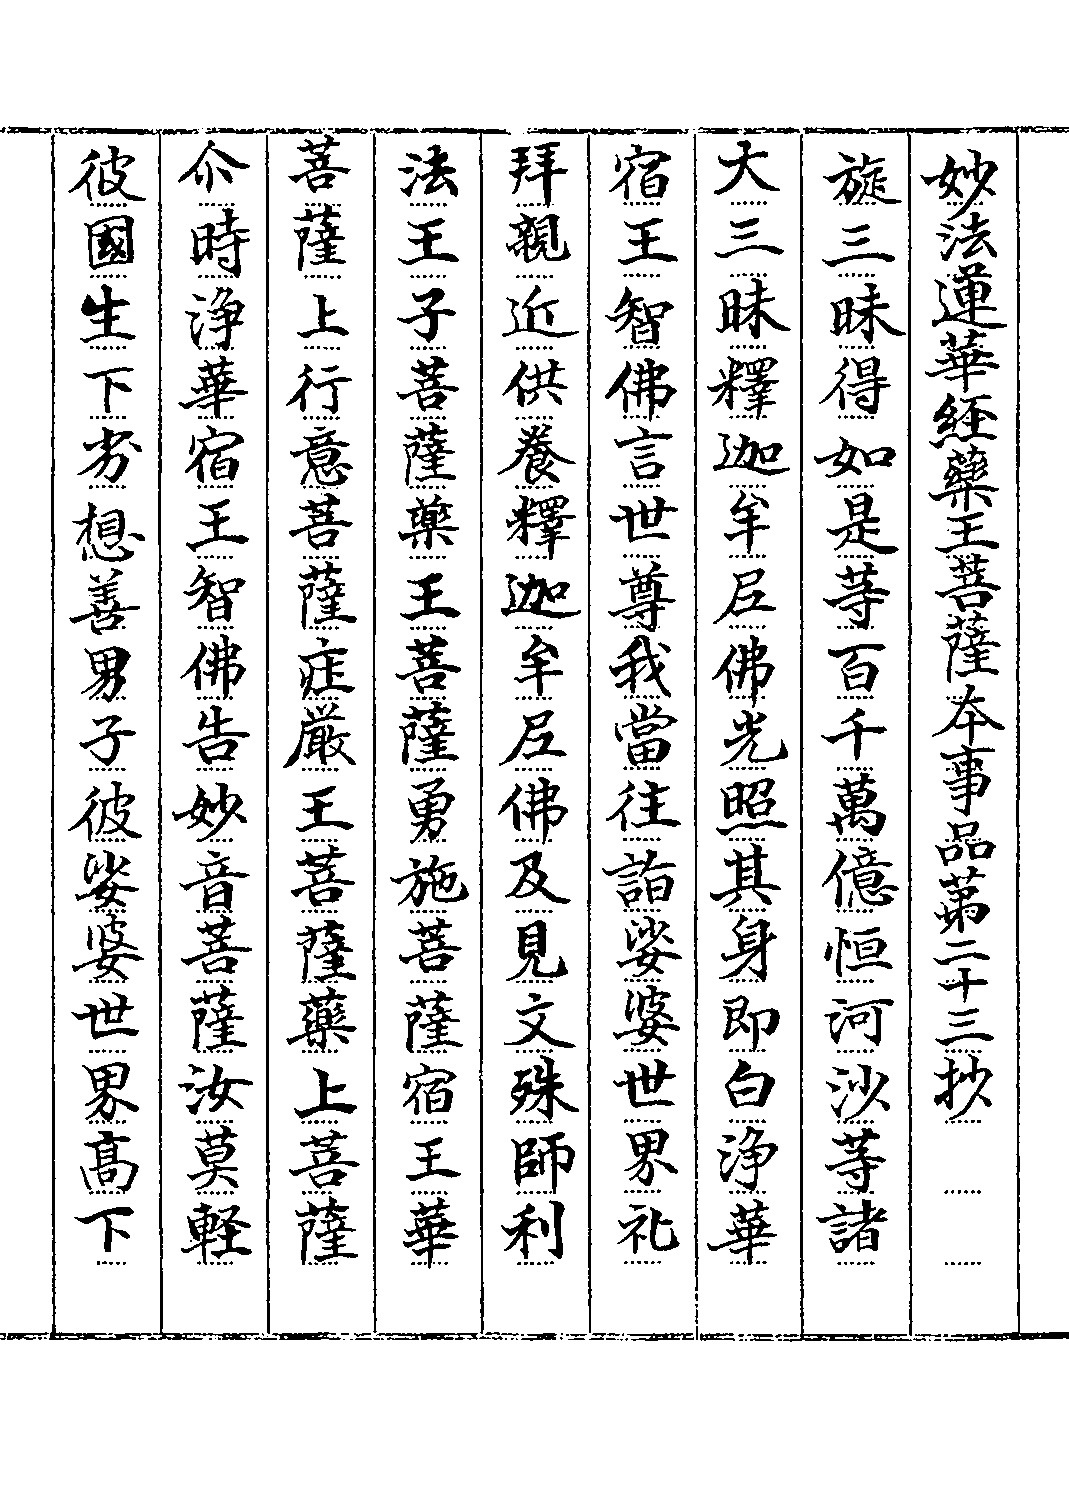 妙法蓮華経藥王菩薩本事品第二十三抄
旋三昧得如是等百千萬億恒河沙等諸
大三昧釋迦牟尼佛光照其身即白浄華
宿王智佛言世尊我當往詣娑婆世界礼
拜親近供養釋迦牟尼佛及見文殊師利
法王子菩薩藥王菩薩勇施菩薩宿王華
菩薩上行意菩薩庄厳王菩薩藥上菩薩
尒時浄華宿王智佛告妙音菩薩汝莫軽
彼國生下劣想善男子彼娑婆世界髙下